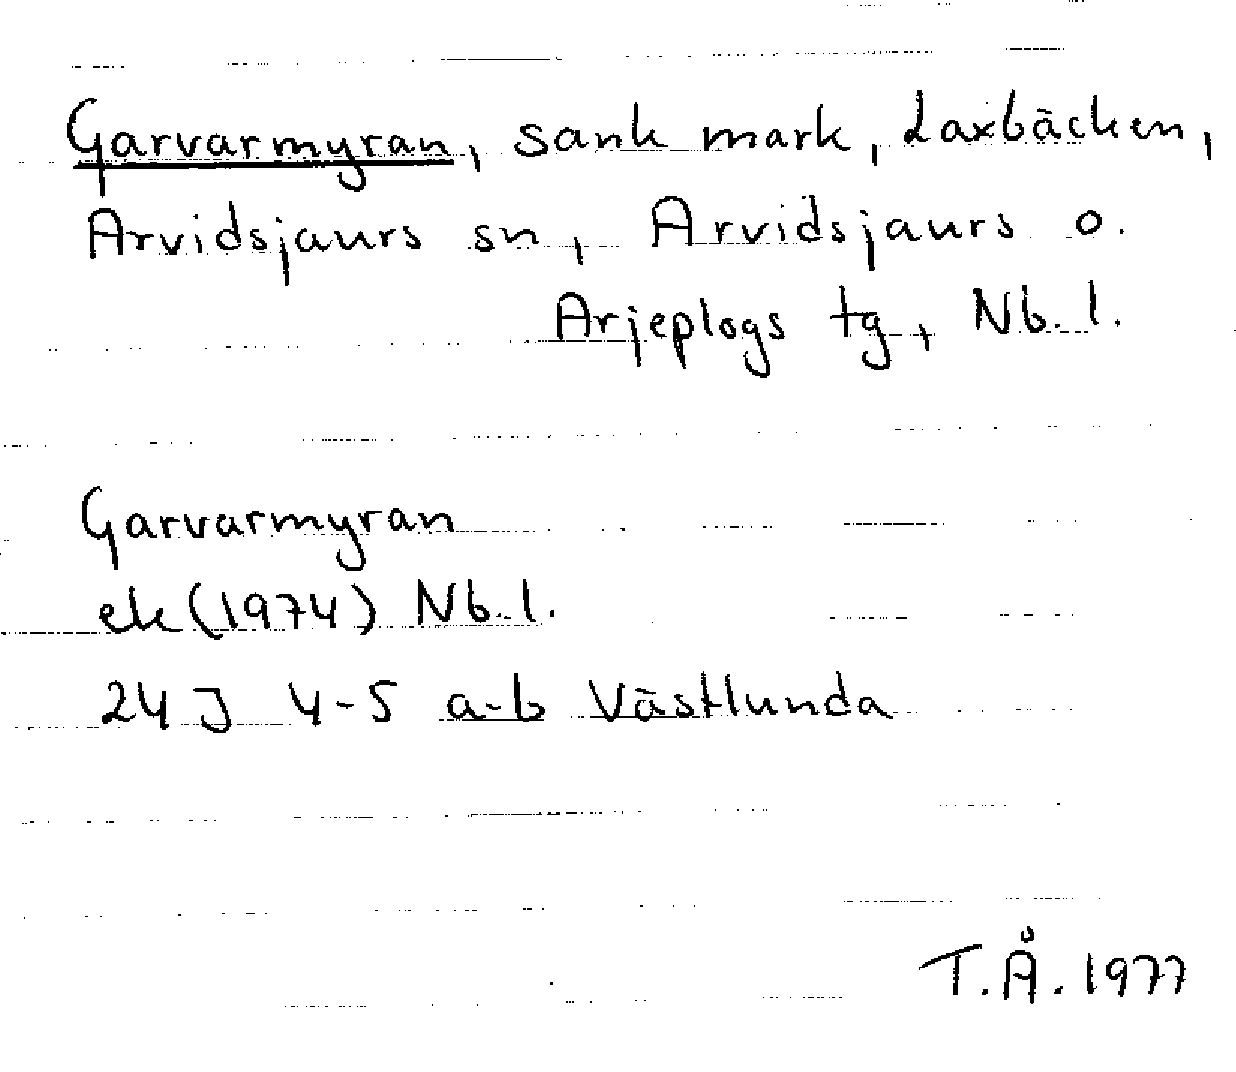 Garvarmyran, sank mark, Laxbäcken,
Arvidsjaurs sn, Arvidsjaurs o.
Arjeplogs tg, Nb. l.
Garvarmyran
ek (1974) Nb. l.
24 J 4-5 a-b Västlunda
T.Å. 1977